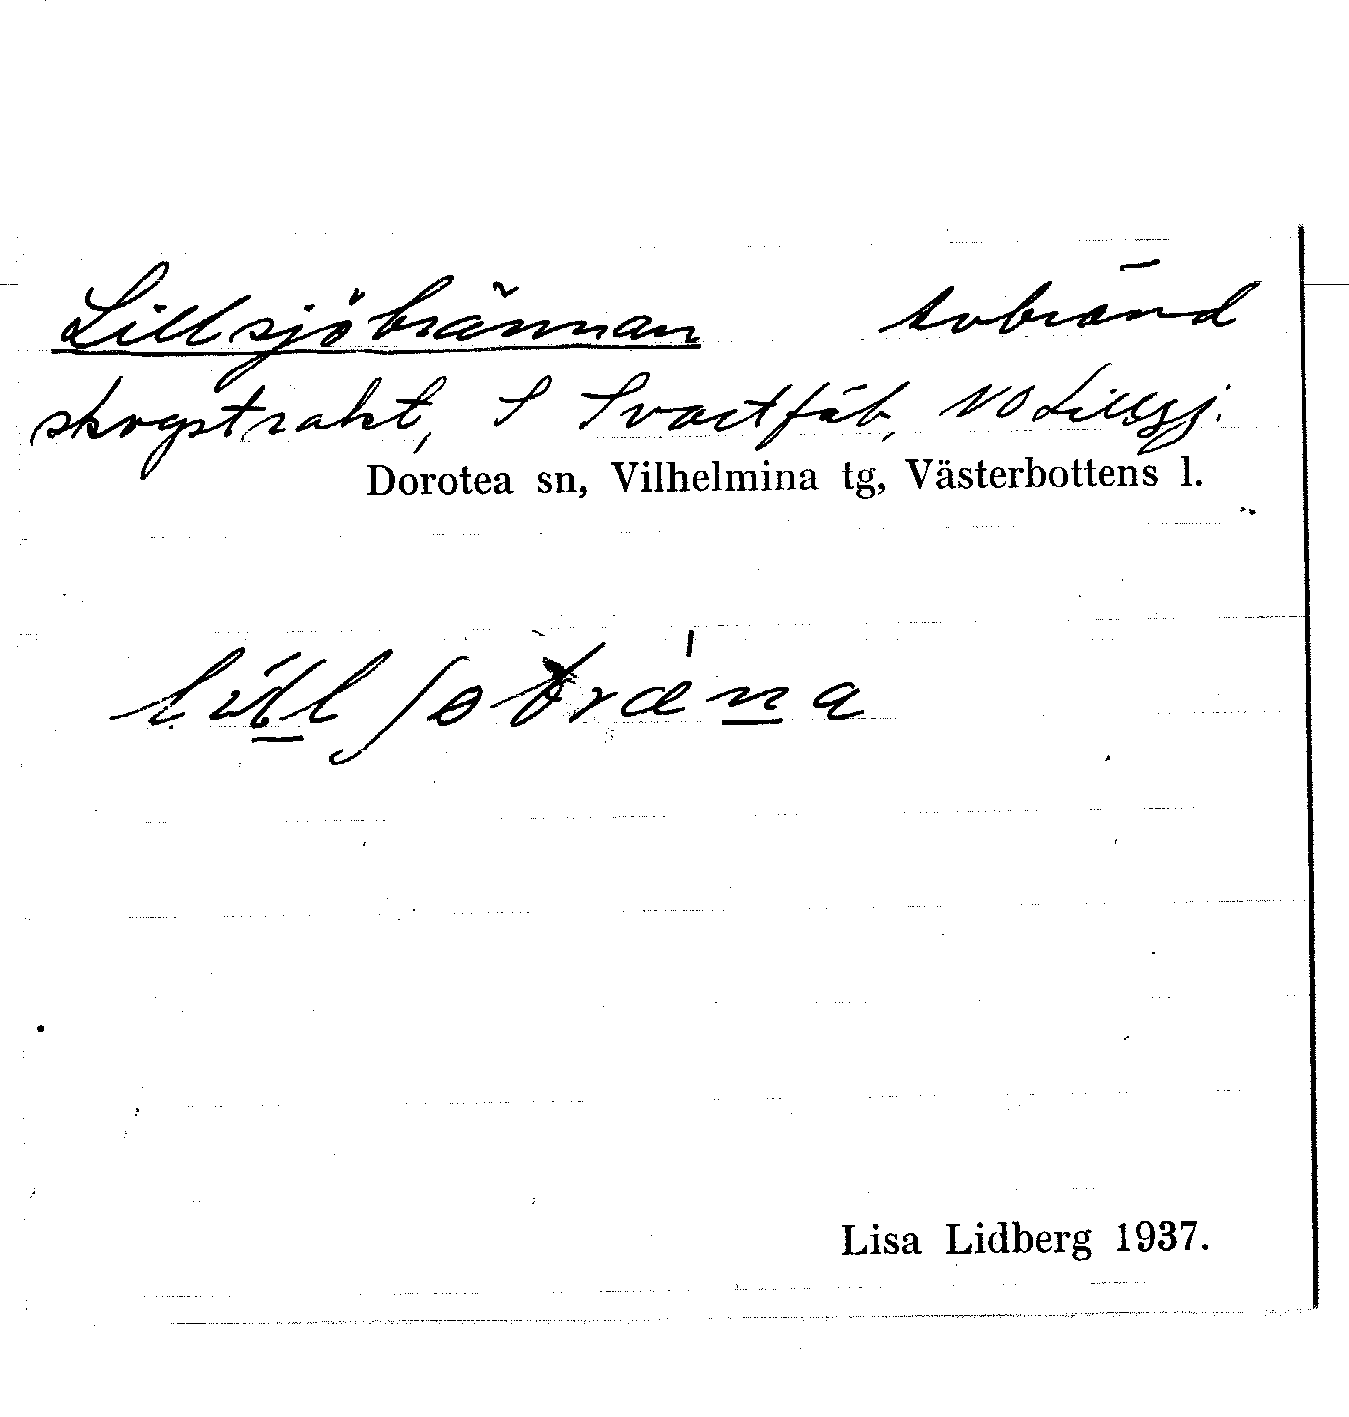 Lillsjöbrännan avbränd
skogstrakt, S Svartfäb, NO Lillsj.
Dorotea sn, Vilhelmina tg, Västerbottens l.
Lisa Lidberg 1937.